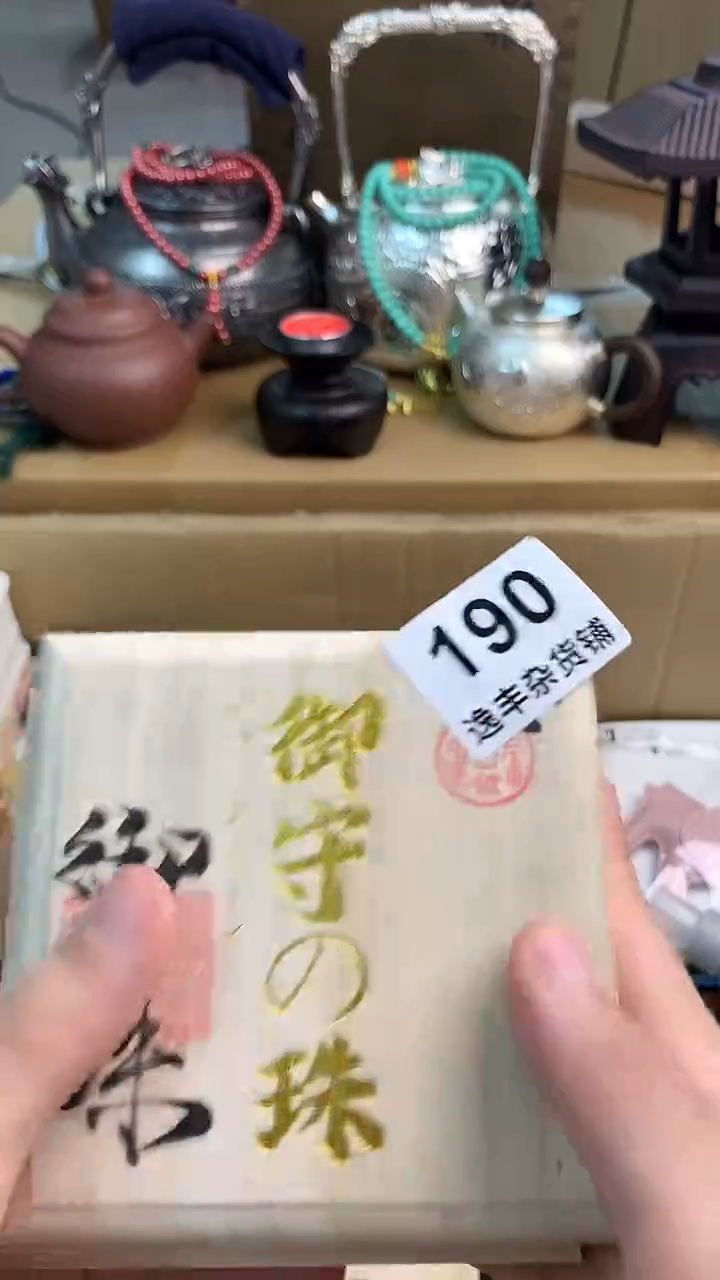 190
逸丰杂货铺
御守の珠
御